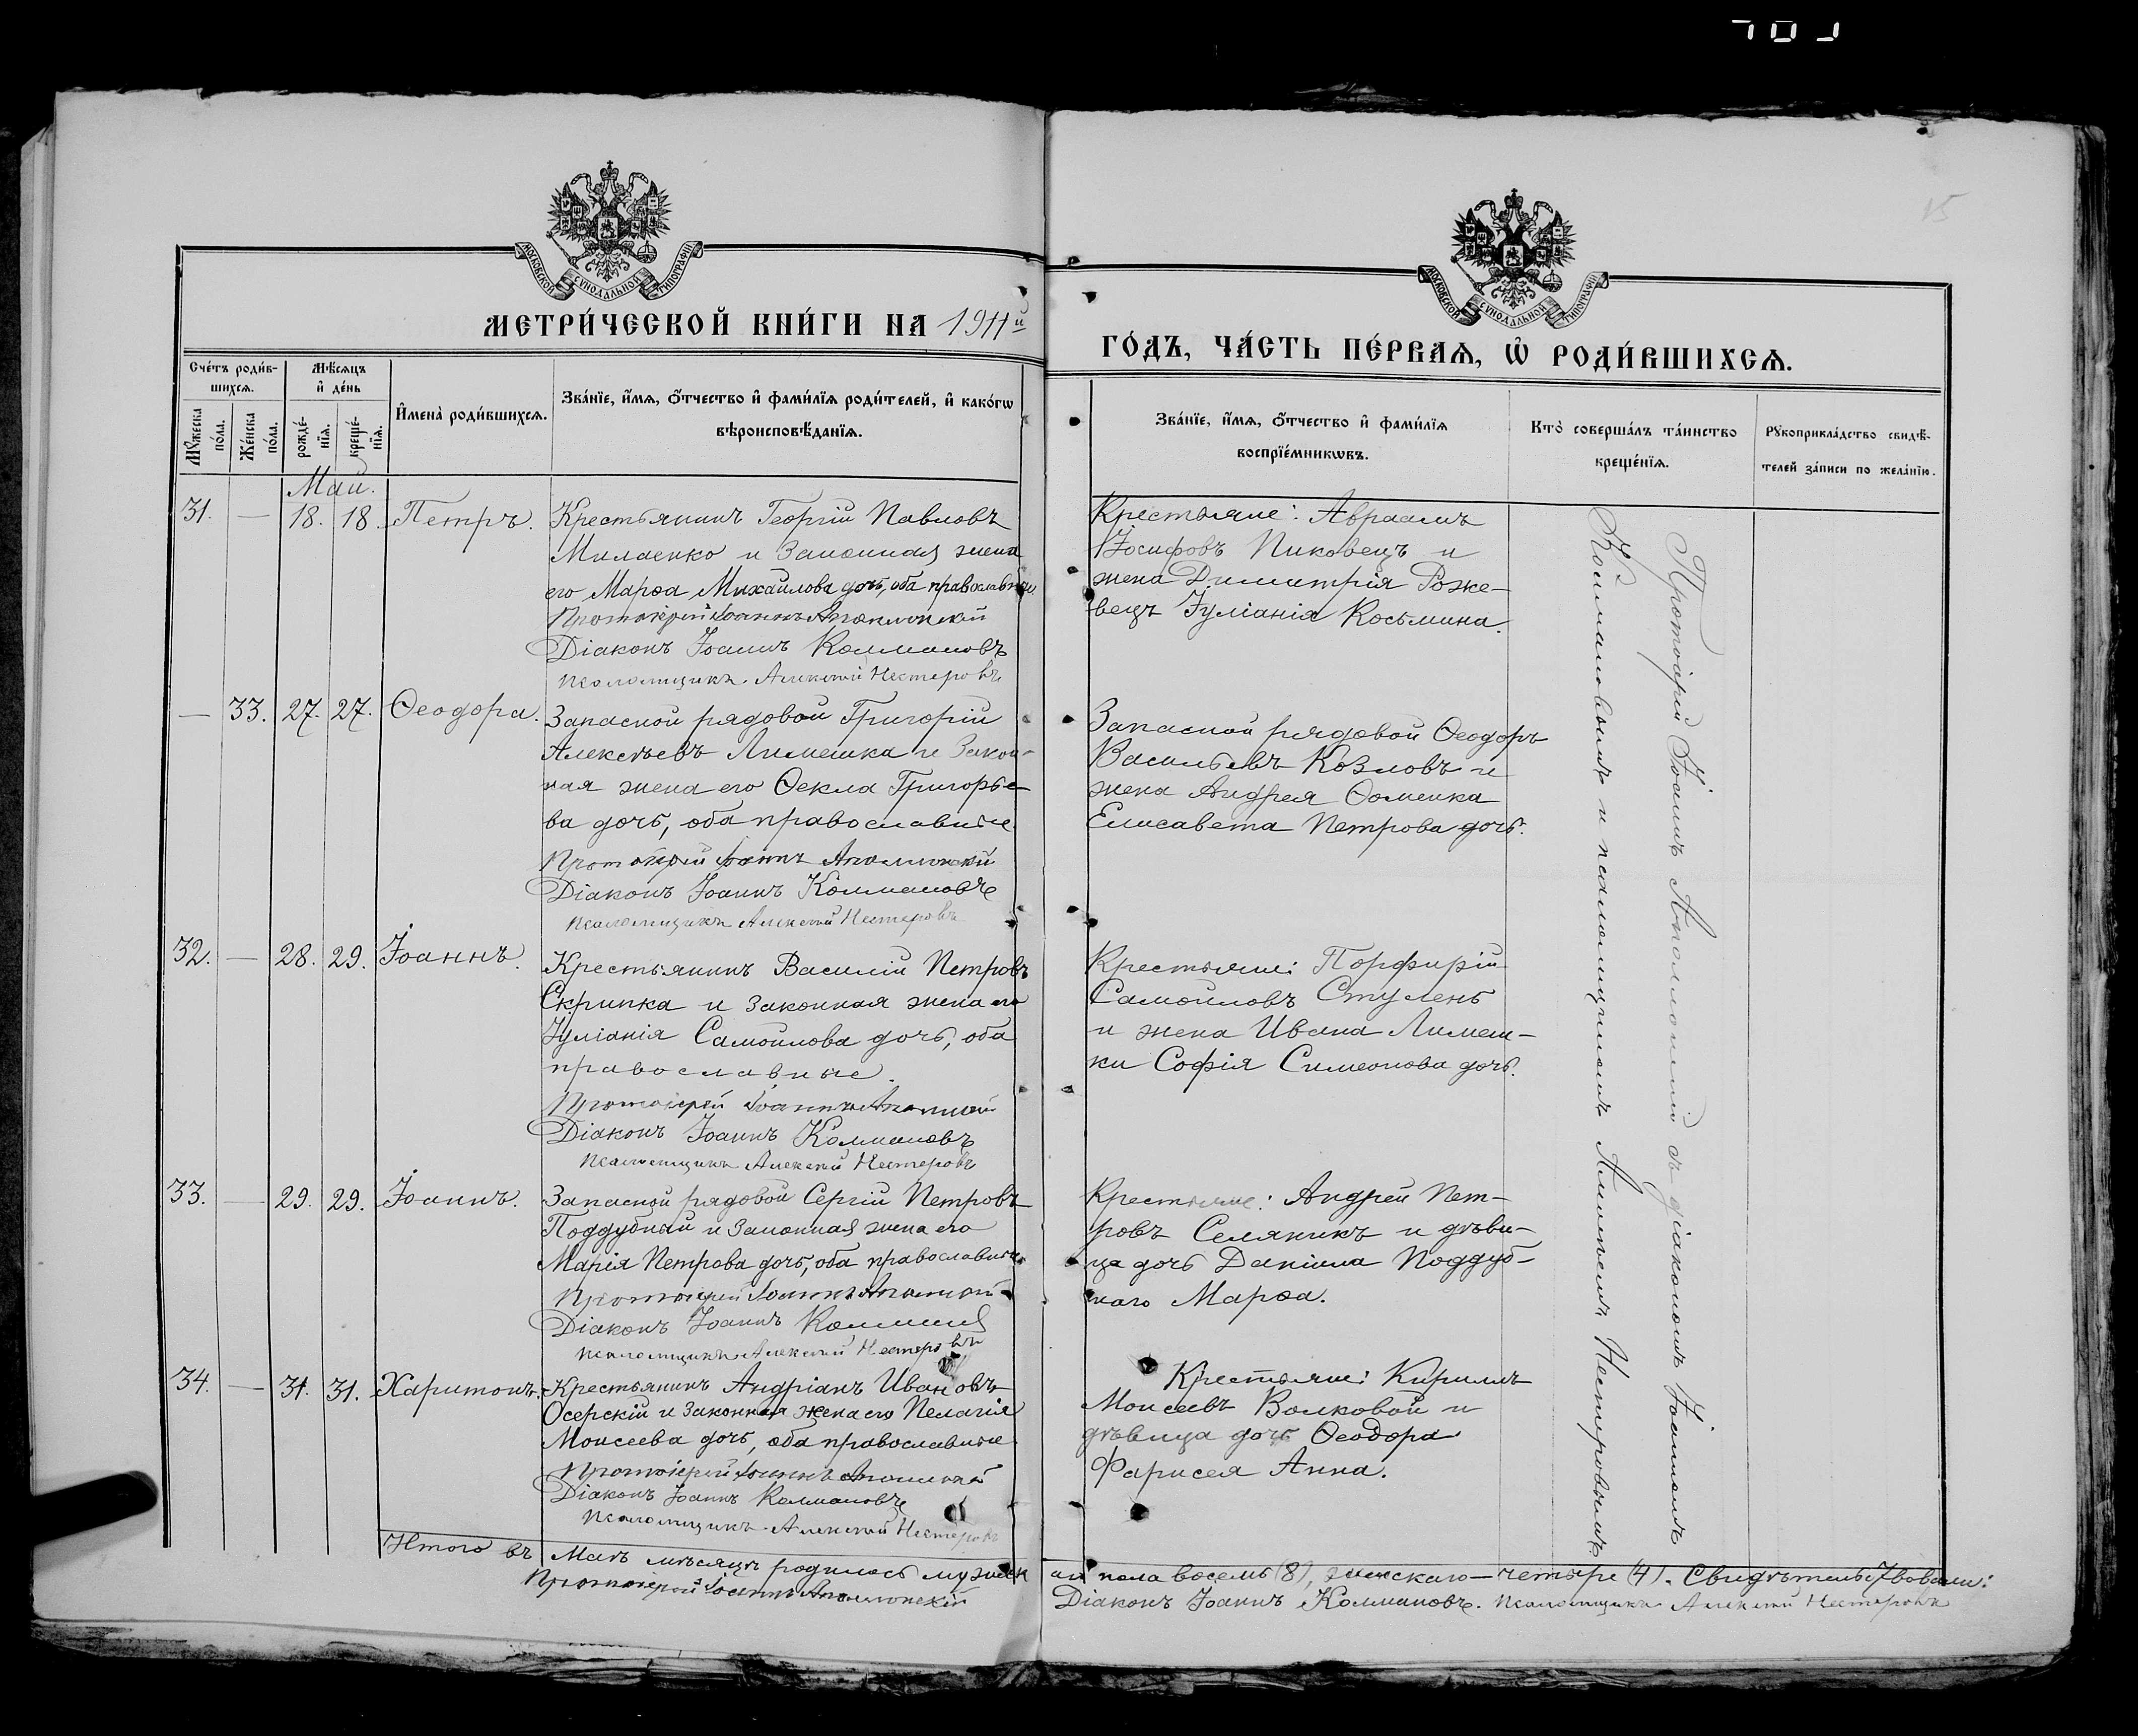 15
МОСКОВСКОЙ СѴНОДАЛЬНОЙ ТИПОГРАФІИ
МОСКОВСКОЙ СѴНОДАЛЬНОЙ ТИПОГРАФІИ
МЕТРИ́ЧЕСКОЙ КНИ́ГИ НА 1911й
ГО́ДЪ, ЧА́СТЬ ПЕ́РВАѦ, Ѡ҆ РОДИ́ВШИХСѦ.
Сче́тъ роди́в-
шихсѧ.
Мѣ́сѧцъ
и҆ де́нь
Мꙋ́жеска по́ла.
Же́нска по́ла.
рожде́-нїѧ.
креще́-нїѧ.
И҆мена̀ роди́вшихсѧ.
Зва́нїе, и҆́мѧ, о҆́тчество и҆ фами́лїѧ роди́телей, и҆ како́гѡ
вѣроисповѣ́данїѧ.
Зва́нїе, и҆́мѧ, о҆́тчество и҆ фами́лїѧ
воспрїе́мникѡвъ.
Кто̀ соверша́лъ та́инство
креще́нїѧ.
Рꙋкоприкла́дство свидѣ́-
телей за́писи по жела́нїю.
Май.
31. — 18. 18. Петръ. Крестьянинъ Георгій Павловъ
Милаенко и Законная жена
его Марѳа Михайлова дочь, оба православные
Протоіерей Іоаннъ Аполлонскій
Діаконъ Іоаннъ Колмановъ
псаломщикъ Алексѣй Нестеровъ
Крестьяне: Авраамъ
Іосифовъ Пиковецъ и
жена Димитрія Роже-
вецъ Іуліанія Косьмина.
— 33. 27. 27. Ѳеодора. Запасной рядовой Григорій
Алексѣевъ Лимешка и Закон-
ная жена его Ѳекла Григорье-
ва дочь, оба православные
Протоіерей Іоаннъ Аполлонскій
Діаконъ Іоаннъ Колмановъ
псаломщикъ Алексѣй Нестеровъ
Запасной рядовой Ѳеодоръ
Васильевъ Козловъ и
жена Андрея Ѳоменка
Елисавета Петрова дочь.
32. — 28. 29. Іоаннъ. Крестьянинъ Василій Петровъ
Скрипка и законная жена его
Іуліанія Самойлова дочь, оба
православные.
Протоіерей Іоаннъ Аполлонскій
Діаконъ Іоаннъ Колмановъ
псаломщикъ Алексѣй Нестеровъ
Крестьяне: Порфирій
Самойловъ Ступень
и жена Ивана Лимеш-
ки Софія Симеонова дочь.
33. — 29. 29. Іоаннъ. Запасной рядовой Сергій Петровъ
Поддубный и Законная жена его
Марія Петрова дочь, оба православные
Протоіерей Іоаннъ Аполлонскій
Діаконъ Іоаннъ Колмановъ
псаломщикъ Алексѣй Нестеровъ
Крестьяне: Андрей Пет-
ровъ Селяникъ и дѣви-
ца дочь Даніила Поддуб-
наго Марѳа.
34. — 31. 31. Харитонъ. Крестьянинъ Андріанъ Ивановъ
Осерскій и законная жена его Пелагія
Моисеева дочь, оба православные
Протоіерей Іоаннъ Аполлонскій
Діаконъ Іоаннъ Колмановъ
псаломщикъ Алексѣй Нестеровъ
Крестьяне: Кириллъ
Моисеевъ Волковой и
дѣвица дочь Ѳеодора
Фарисея Анна.
Протоіерей Іоаннъ Аполлонскій съ діакономъ Іоанномъ
Колмановымъ и псаломщикомъ Алексѣемъ Нестеровымъ
Итого въ Маѣ мѣсяцѣ родилось мужеск
аго пола восемь (8), женскаго — четыре (4). Свидѣтельствовали:
Протоіерей Іоаннъ Аполлонскій
Діаконъ Іоаннъ Колмановъ. псаломщикъ Алексѣй Нестеровъ